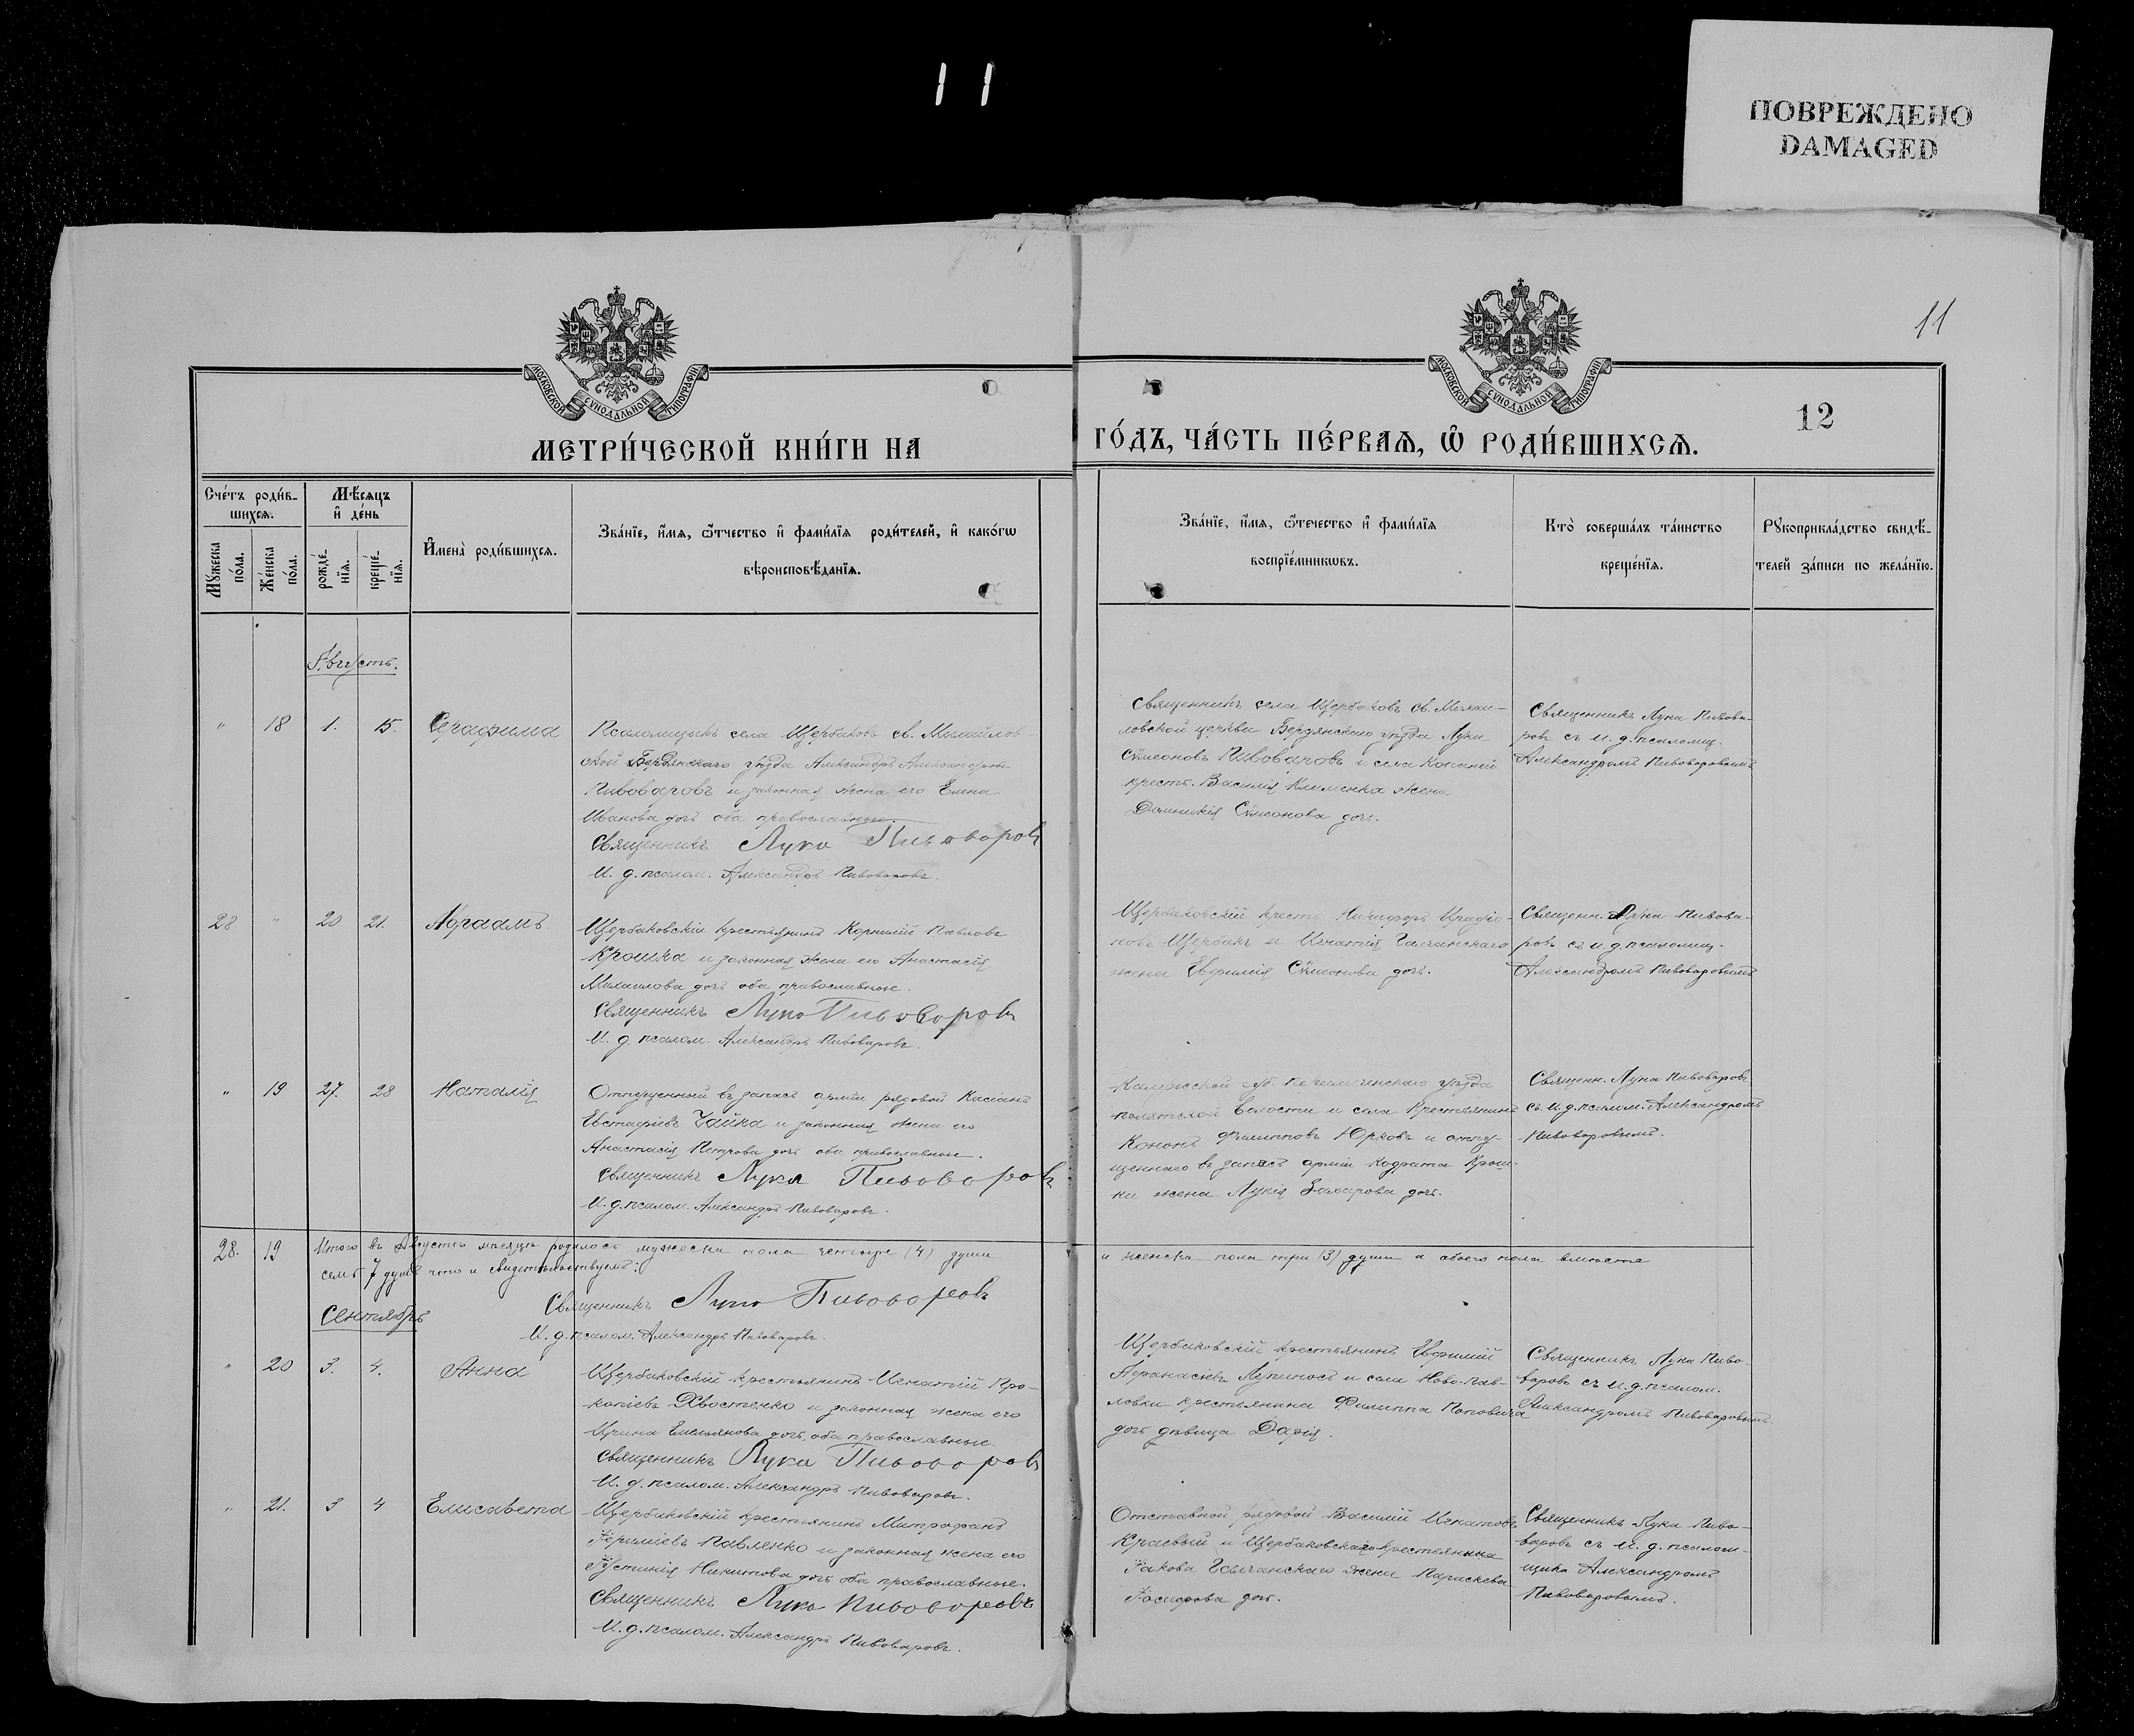 11
ПОВРЕЖДЕНО
DAMAGED
11
12
МОСКОВСКОЙ СѴНОДАЛЬНОЙ ТИПОГРАФІИ
МОСКОВСКОЙ СѴНОДАЛЬНОЙ ТИПОГРАФІИ
МЕТРИ́ЧЕСКОЙ КНИ́ГИ НА
ГО́ДЪ, ЧА́СТЬ ПЕ́РВАѦ, Ѽ РОДИ́ВШИХСѦ.
Сче́тъ роди́в-
шихсѧ.
Мꙋ́жеска
по́ла.
Же́нска
по́ла.
Мѣ́сѧцъ
и҆ де́нь
рожде́-
нїѧ.
креще́-
нїѧ.
И҆мена̀ роди́вшихсѧ.
Зва́нїе, и҆́мѧ, ѻ҆́тчество и҆ фами́лїѧ роди́телей, и҆ како́гѡ
вѣроисповѣ́данїѧ.
Зва́нїе, и҆́мѧ, ѻ҆́течество и҆ фами́лїѧ
воспрїе́мникѡвъ.
Кто̀ соверша́лъ та́инство
креще́нїѧ.
Рꙋкоприкла́дство свидѣ́-
телей за́писи по жела́нїю.
Августъ.
" 18 1. 15. Серафима
Псаломщикъ села Щербаковъ св. Михайлов-
ской Бердянскаго уѣзда Александръ Александровъ
Пивоваровъ и законная жена его Елена
Иванова дочь оба православные.
Священникъ Лука Пивоваровъ
И. д. псалом. Александръ Пивоваровъ.
Священникъ села Щербаковъ св. Михаи-
ловской церкви Бердянскаго уѣзда Лука
Сѵмеоновъ Пивоваровъ и села Копаней
крест. Василія Клименка жена
Домникія Сѵмеонова дочь.
Священникъ Лука Пивова-
ровъ съ и. д. псаломщ.
Александромъ Пивоваровымъ
28 " 20 21. Авраамъ
Щербаковскій крестьянинъ Корнилій Павловъ
Крошка и законная жена его Анастасія
Михаилова дочь оба православные.
Священникъ Лука Пивоваровъ
И. д. псалом. Александръ Пивоваровъ.
Щербаковскій крест. Никифоръ Иродіо-
новъ Щербакъ и Игнатія Галчанскаго
жена Евфимія Сѵмеонова дочь.
Священн. Лука Пивова-
ровъ съ и. д. псаломщ.
Александромъ Пивоваровымъ
" 19 27. 28 Наталія
Отпущенный въ запасъ арміи рядовой Касіанъ
Евстафіевъ Чайка и законная жена его
Анастасія Петрова дочь оба православные.
Священникъ Лука Пивоваровъ
И. д. псалом. Александръ Пивоваровъ.
Калужской губ. уѣзда
волости и села крестьянинъ
Кононъ Филипповъ Юрковъ и отпу-
щеннаго въ запасъ арміи Кодрата Крош-
ки жена Лукія Захарова дочь.
Священн. Лука Пивоваровъ
съ и. д. псалом. Александромъ
Пивоваровымъ.
28. 19 Итого въ Августѣ мѣсяцѣ родилось мужеска пола четыре (4) души
и женска пола три (3) души а обоего пола вмѣстѣ
семь 7 душъ что и свидѣтельствуемъ:
Священникъ Лука Пивоваровъ
И. д. псалом. Александръ Пивоваровъ.
Сентябрь
" 20 3. 4. Анна
Щербаковскій крестьянинъ Игнатій Про-
копіевъ Хвостенко и законная жена его
Ирина Емельянова дочь, оба православные.
Священникъ Лука Пивоваровъ
И. д. псалом. Александръ Пивоваровъ.
Щербаковскій крестьянинъ Евфимій
Афанасіевъ Лупиносъ и села Ново-Пав-
ловки крестьянина Филиппа Поповича
дочь дѣвица Дарія.
Священникъ Лука Пиво-
варовъ съ и. д. псалом.
Александромъ Пивоваровымъ.
" 21. 3 4 Елисавета
Щербаковскій крестьянинъ Митрофанъ
Іереміевъ Павленко и законная жена его
Іустинія Никитова дочь оба православные.
Священникъ Лука Пивоваровъ
И. д. псалом. Александръ Пивоваровъ.
Отставной рядовой Василій Игнатовъ
Краевый и Щербаковскаго крестьянина
Іакова Галчанскаго жена Параскева
Іосифова дочь.
Священникъ Лука Пиво-
варовъ съ и. д. псалом-
щика Александромъ
Пивоваровымъ.